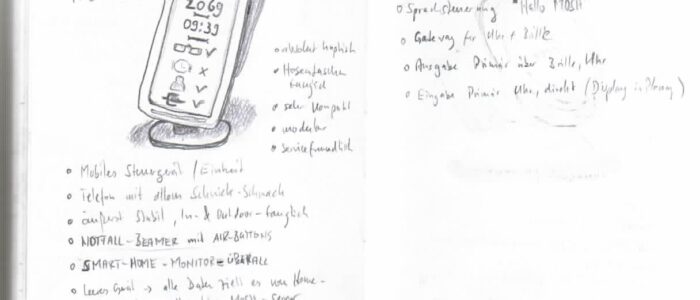 2069
09:39
o absolut tauglich
o Hosentaschen
tauglich
o sehr kompakt
o modular
o servicefreundlich
o Mobiles Steuergerät / Einheit
o Telefon mit allem Schnick-Schnack
o äußerst stabil, In- & Outdoor-tauglich
o NOTFALL-BEAMER mit AIR-BUTTONS
o SMART-HOME-MONITOR-ÜBERALL
o Leeres Gerät → alle Daten zieht es von Home-
o Sprachsteuerung "Hallo
o Gateway für Uhr + Brille
o Ausgabe Primär über Brille, Uhr
o Eingabe Primär Uhr, direkt (Display in Planung)